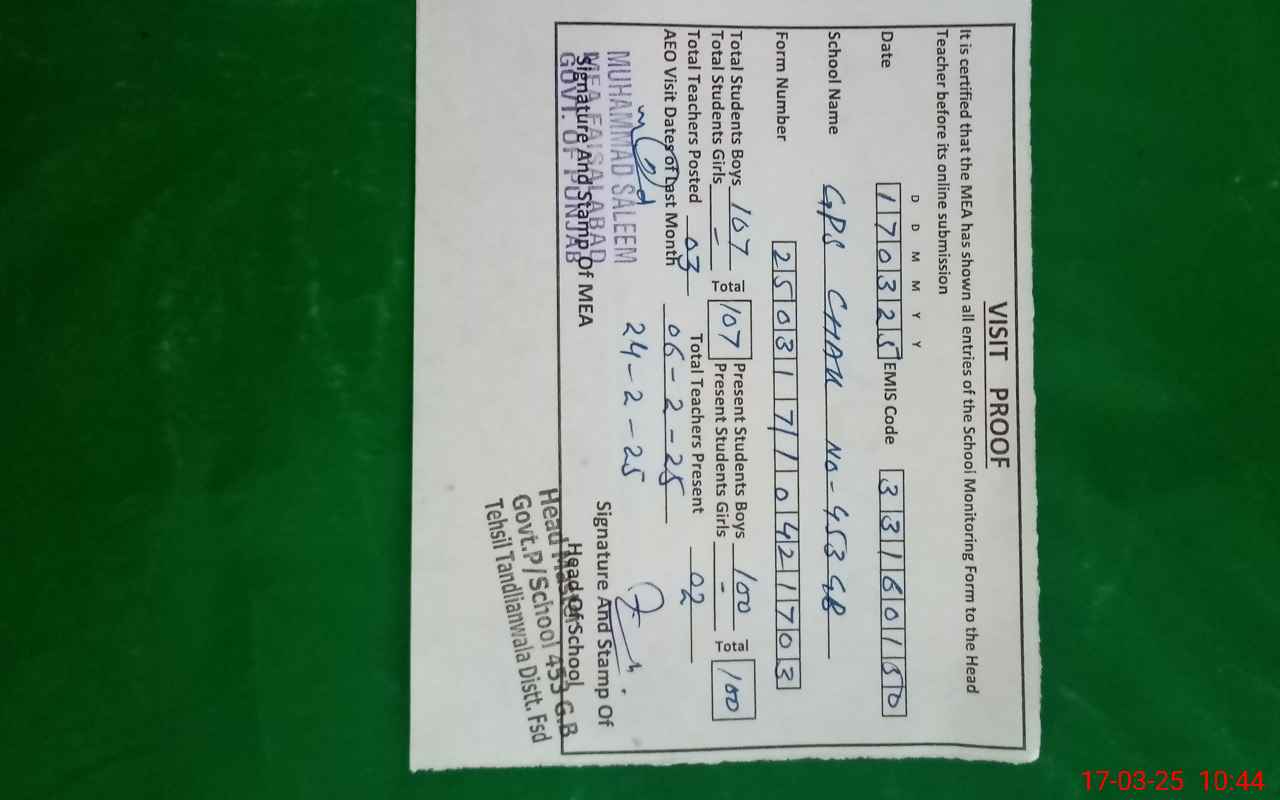 VISIT PROOF
It is certified that the MEA has shown all entries of the School Monitoring Form to the Head
Teacher before its online submission
D D M M Y Y
Date 170325 EMIS Code 33160150
School Name GPS CHAK No-453 GB
Form Number 25031710421703
Total Students Boys 107 Present Students Boys 100
Total Students Girls - Total 107 Present Students Girls - Total 100
Total Teachers Posted 03 Total Teachers Present 02
AEO Visit Dates of Last Month 06-2-25
24-2-25
MUHAMMAD SALEEM
MEA FAISALABAD
GOVT. OF PUNJAB
Signature And Stamp Of MEA
Signature And Stamp Of
Head Of School
Head Master
Govt.P/School 453 G.B
Tehsil Tandlianwala Distt. Fsd
17-03-25 10:44